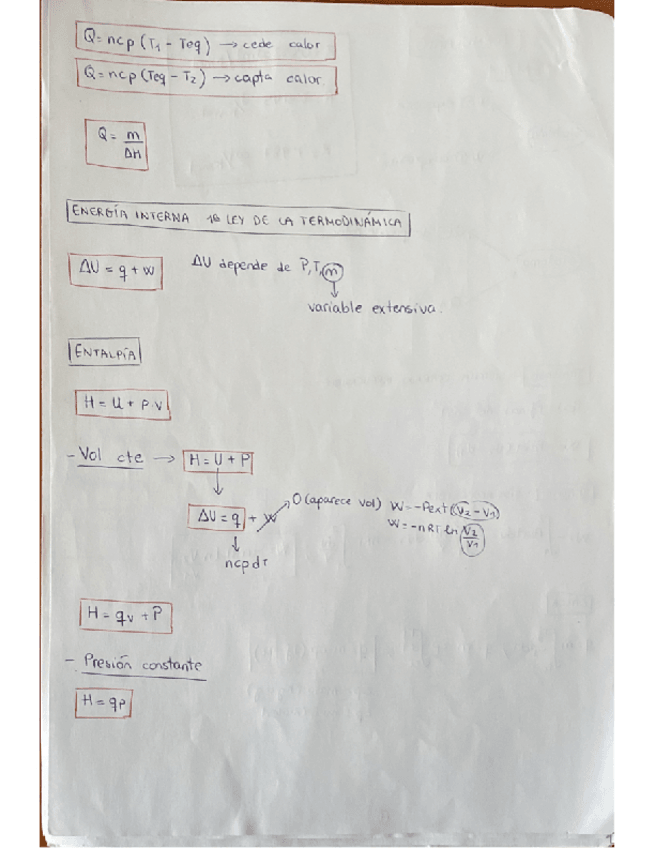 Q = ncp (T1 - Teq) → cede calor
Q = ncp (Teq - T2) → capta calor.
Q = m/ΔH
ENERGÍA INTERNA 1ª LEY DE LA TERMODINÁMICA
ΔU = q + w ΔU depende de P, T, m
variable extensiva.
ENTALPÍA
H = U + P.V
- Vol cte → H = U + P
ΔU = q + w 0 (aparece vol) W = -Pext (V2 - V1)
W = -nRT ln V2/V1
ncpdT
H = qv + P
- Presión constante
H = qp